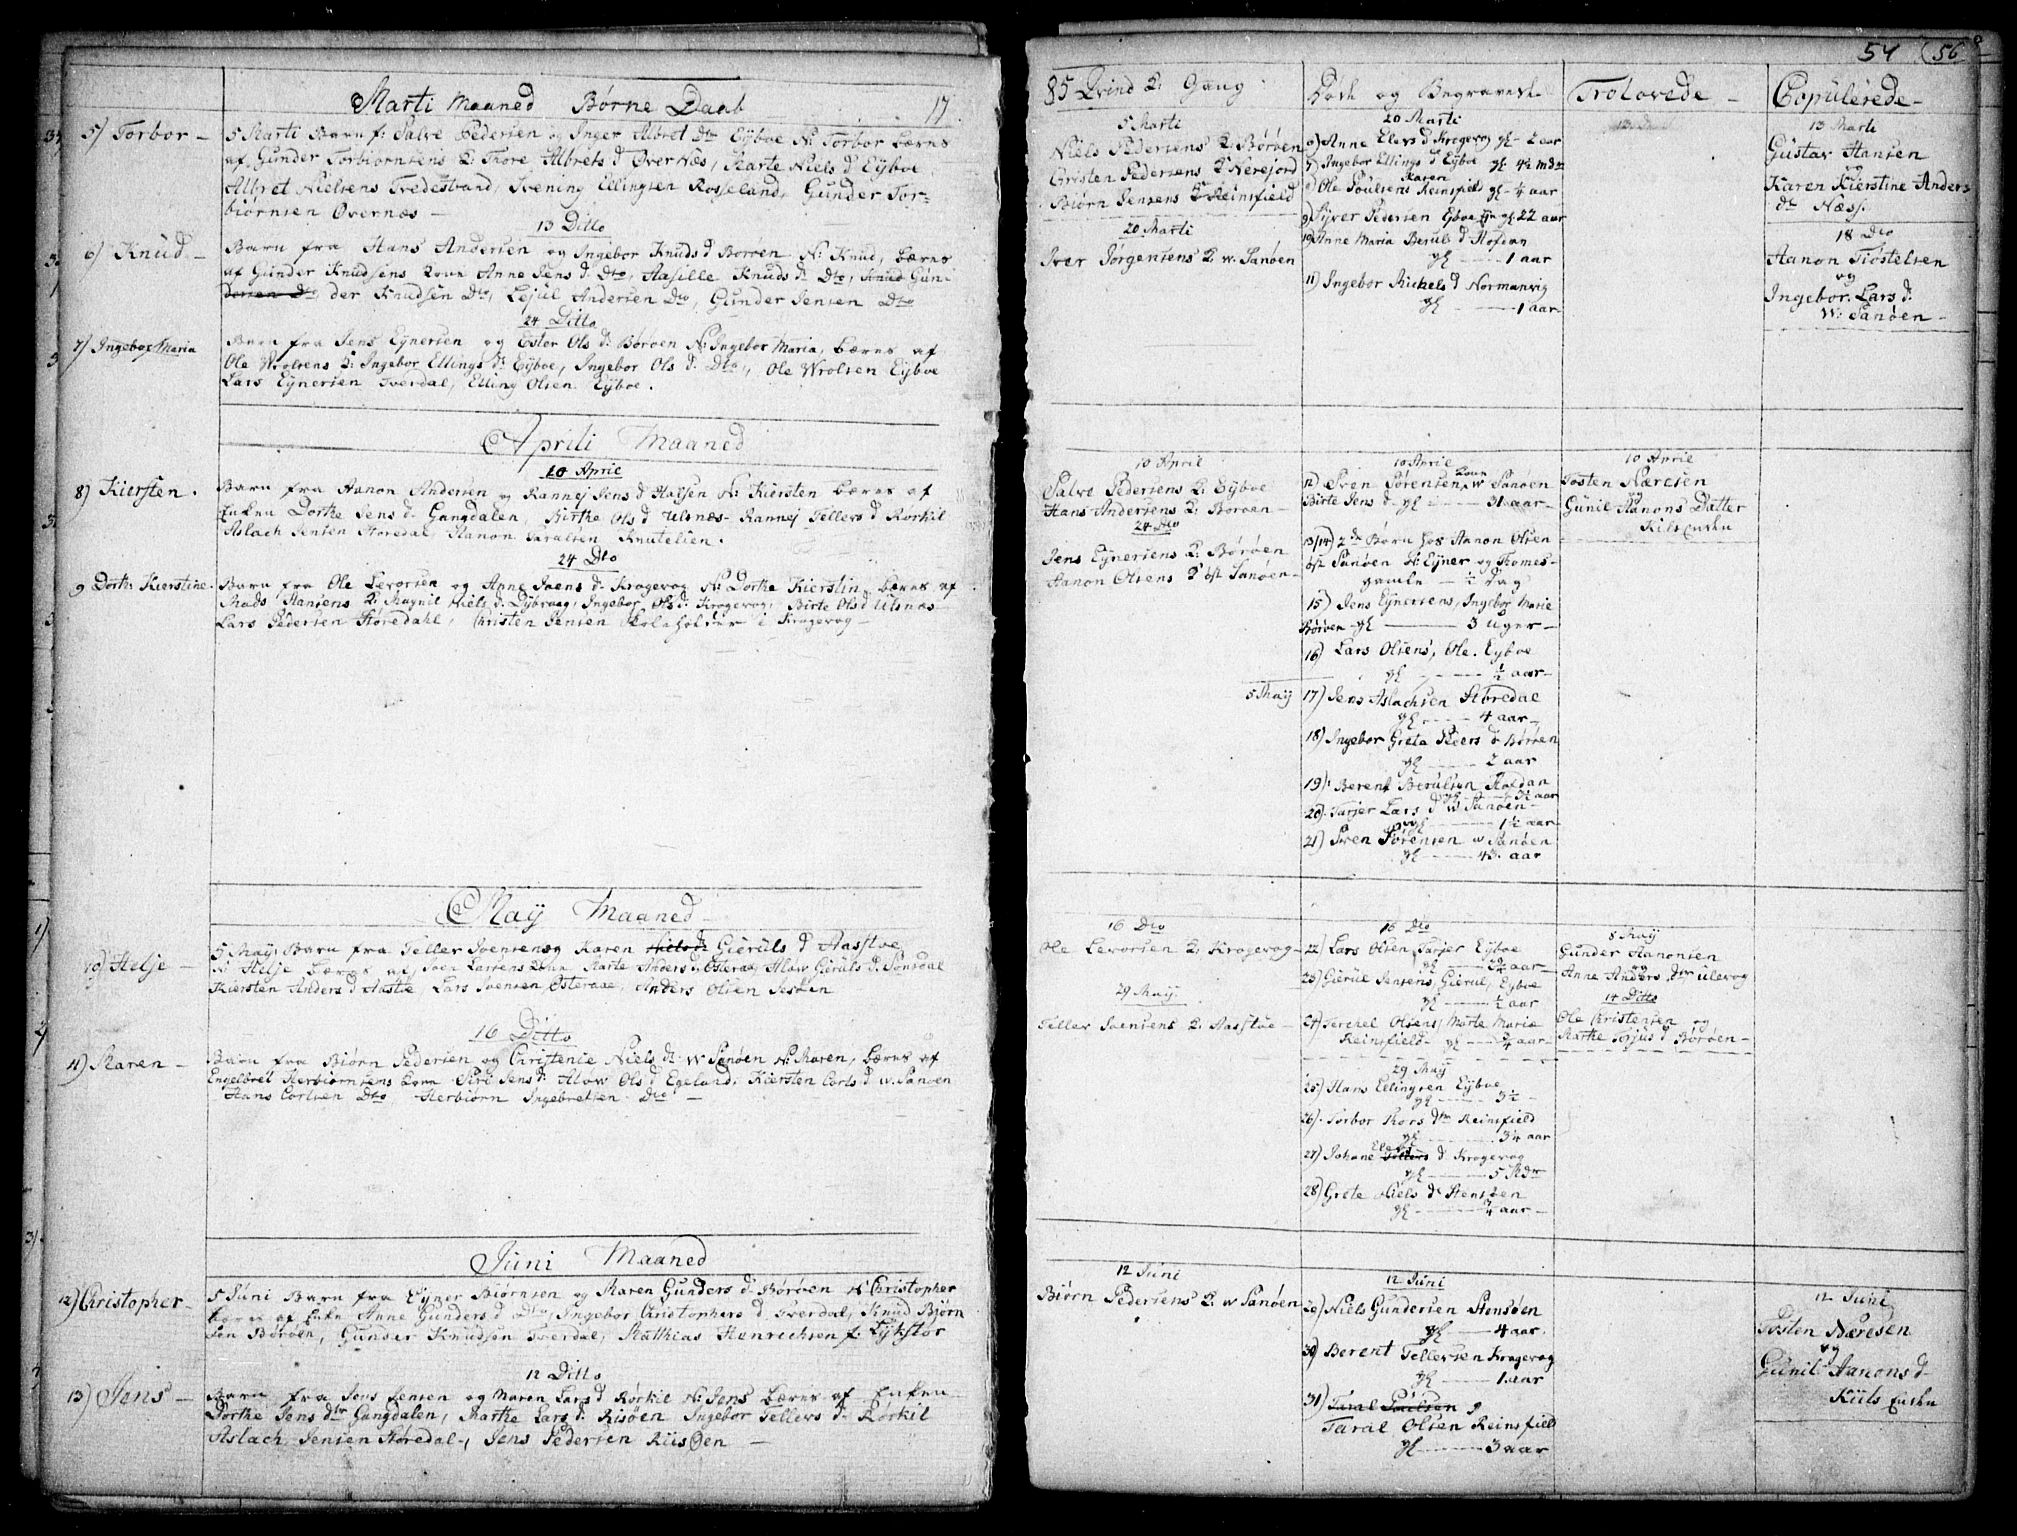 Marti Maaned Børne Daab 17
5) Torbor -
5 Marti Barn f: Salve Pedersen og Inger Albret Dtr Eÿboe N: Torbor bæren
af, Gunder Torbiornsens K: Thore Albrets d Øvernæs, Marte Niels d Eÿboe
Albret Nielsens Tredestrand, Svening Ellingsen Rosseland, Gunder Tor-
biørnsen Øvernæs -
13 Ditto
6) Knud -
Barn fra Hans Andersen og Ingebor Knuds d Borøen N: Knud, bæren
af Gunder Knudsens Kone Anne Jens d: Dto, Aasille Knuds d: Dto, Gun-
der Knudsen Dto, Lejul Andersen Dto, Gunder Jensen Dto
24 Ditto
7) Ingebor Maria
Barn fra Jens Eÿnersen og Ester Ols d: Børøen N: Ingebor Maria, bæren af
Ole Wrolsens K: Ingebor Ellings d: Eÿboe, Ingebor Ols d: Dto, Ole Wrolsen Eÿboe
Lars Eÿnersen Tverdal, Elling Olsen Eÿboe.
Aprili Maaned
10 April
8) Kiersten.
Barn fra Aanon Andersen og Rannej Jens d Halsen N: Kiersten bæren af
Enken Dorthe Jens d: Gangdalen, Birthe Ols d Ulsnæs Rannej Tellers d Rørkil
Aslach Jensen Støredal, Aanon Taralsen Knutelien.
24 Dto
9 Dorth: Kierstine.
Barn fra Ole Levorsen og Anne Soens d: Krogevog N: Dorthe Kierstin, bæren af
Mads Hansens K: Magnil Niels d: Dÿbvaag, Ingebor Ols d: Krogevog, Birte Ols d Ulsnæs
Lars Pedersen Støredahl, Christen Jensen Skoleholder i Krogevog -
Maÿ Maaned
10) Helje -
5 Maÿ Barn fra Teller Soensen og Karen Gieruls d Aasstøe
N: Helje bæren af, Soen Larsens Kone Marte Anders d: Osteraae, Alow Gieruls d: Sonsdal
Kiersten Anders d Aastøe, Lars Soensen Osteraae, Anders Olsen
16 Ditto
11) Maren -
Barn fra Biørn Pedersen og Christenie Niels d: W Sanøen N: Maren, bæren af
Engelbret Herbiørnsens Kone Siri Jens d: Alow Ols d Egeland, Kiersten Carls d W. Sanøen
Hans Carlsen Dto, Herbiørn Ingebretsen Dto -
Juni Maaned
12) Christopher -
5 Juni Barn fra Eÿner Biørnsen og Maren Gunders d: Børøen N: Christopher
bæren af Enkn Anne Gunders d Dto, Ingebor Christophers d Tverdal, Knud Bjørn
sen Børøen, Gunder Knudsen Tverdal, Matthias Henrichsen f: Lÿkstør
12 Ditto
13) Jens -
Barn fra Jens Jensen og Maren Lars d Rørkil N: Jens bæren af Enken
Dorthe Jens dtr Gangdalen, Marthe Lars d: Risøen Ingebor Tellers d: Rørkil
Aslach Jensen Støredal, Jens Pedersen Riisøen -
54 56
85 Qvind K: Gang
5 Marti
Niels Pedersens K: Børøen
Cristen Pedersens K: Nerejord
Biørn Jensens K: Reinsfield
20 Marti
Iver Jørgensens K: W. Sanøen
10 April
Salve Pedersens K: Eÿboe
Hans Andersens K: Borøen -
24 Dto
Jens Eÿnersens K: Børøen
Aanon Olsens K: øst Sanøen -
5 Maÿ
16 Dto
Ole Levorsens K: Krogevog -
29 Maÿ
Teller Soensens K: Aasstøe -
12 Juni
Biørn Pedersens K: W Sanøen
Døde og Begravede
20 Marti
6) Anne Elers d Krogevog gl - 2 aar
7) Ingebor Ellings d Eÿboe gl 4½ mdr
8) Ole Poulsens Maren Reinsfield gl - ¼ aar
9) Sÿver Pedersen Eÿboe gl 22 aar
10) Anne Maria Beruls d Hofdan
gl - 1 aar
11) Ingebor Michels d Normanvig
gl - 1 aar
10 April
12) Sven Sørensens Kone W Sanøen
Birte Jens d - gl - 31 aar -
13/14) 2de Børn hos Aanon Olsen
øst Sanøen N: Eÿner og Thomes -
gamle - ½ dag
15) Jens Eÿnersens, Ingebor Marie
Børøen - gl - 3 uger -
16) Lars Olsens, Ole. Eyboe
gl - ½ aar -
17) Jens Aslachsen Støredal
gl - 4 aar -
18) Ingebor Grete Peers d: Børøen
gl - 2 aar
19) Berent Berulsen Hofdan
gl - 3½ aar
20) Tarjer Lars d W Sanøen -
gl - 1½ aar -
21) Sven Sørensen W Sanøen
gl - 43 aar
16 Dto
22) Lars Olsen, Tarjer Eÿboe
gl - ¾ aar -
23) Gierul Jensens, Gierul, Eÿboe
gl - ½ aar
24) Terchel Olsens, Marte Maria
Reinsfield - gl - ¾ aar -
29 Maÿ
25) Hans Ellingsen Eÿboe
gl - 3½ -
26) Torbor Thors dtr Reinsfield
gl - 3¼ aar
27) Johane Elers d Krogevog
gl - 5 Mdr
28) Grete Niels d: Stensøen
gl - ¾ aar -
12 Juni
29) Niels Gundersen Stensøen
gl - 4 aar.
30) Berent Tellersen Krogevog
gl - 1 aar
31) Taral Poulsen
Taral Olsen Reinsfield
gl - 3 aar
Trolovede -
10 April
Tosten Næresen
og
Gunil Aanons Datter
Kils Enken
8 Maÿ
Gunder Aanonsen
og
Anne Anders dtr Ulevog
14 Ditto
Ole Christensen og
Marthe Torjus d Børøen -
Copulerede -
13 Marti
Gustav Hansen
og
Karen Kierstine Anders
dtr Næss.
18 Dto
Aanon Tiøstelsen
og
Ingebor Lars d:
W: Sanøen -
12 Juni
Tosten Næresen
og
Gunil Aanons d
Kiils Enken